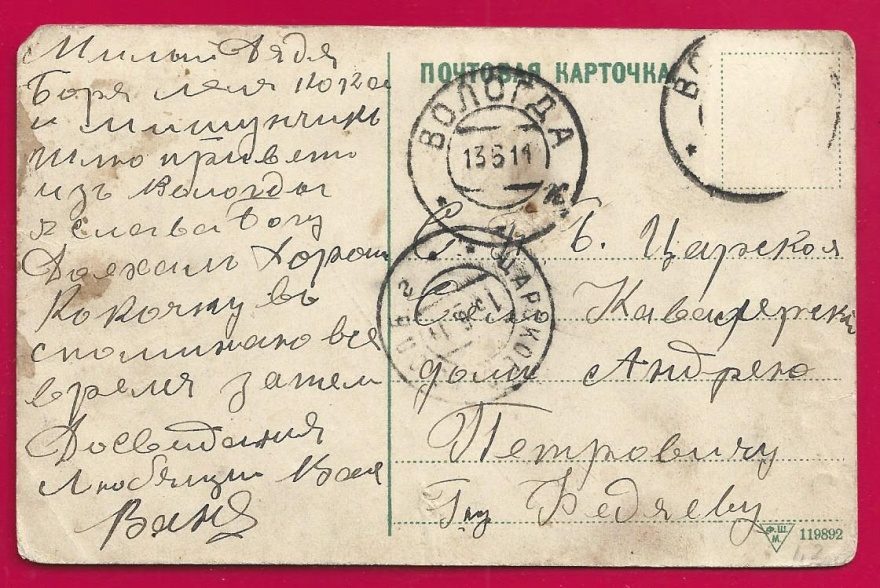 Милый Дядя
Боря Леля Кока
и Мишунчикъ
шлю приветъ
изъ Вологды
я слава Богу
Доехалъ Хорош
Кокочку въ
споминаю все
время затем
Досвидания
Любящий Вас
Ваня
ПОЧТОВАЯ КАРТОЧКА
ВОЛОГДА
13 6 11
ЦАРСКОЕ
С. П. Б. Царское
Село
дом Андрею
Петровичу
Гну Федяеву
Ф.Ш.
М.
119892